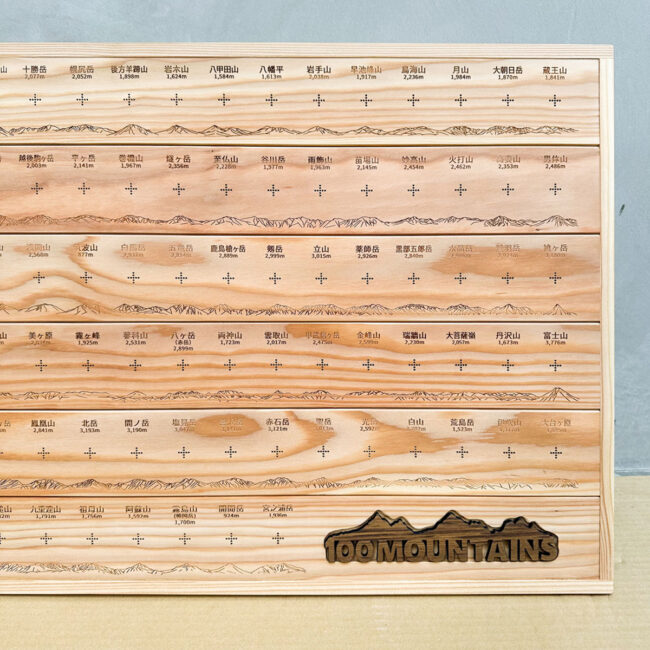 山 十勝岳 幌尻岳 後方羊蹄山 岩木山 八甲田山 八幡平 岩手山 早池峰山 鳥海山 月山 大朝日岳 蔵王山
2,077m 2,052m 1,898m 1,624m 1,584m 1,613m 2,038m 1,917m 2,236m 1,984m 1,870m 1,841m
越後駒ヶ岳 平ヶ岳 巻機山 燧ヶ岳 至仏山 谷川岳 雨飾山 苗場山 妙高山 火打山 高妻山 男体山
2,003m 2,141m 1,967m 2,356m 2,228m 1,977m 1,963m 2,145m 2,454m 2,462m 2,353m 2,486m
浅間山 筑波山 白馬岳 五竜岳 鹿島槍ヶ岳 剱岳 立山 薬師岳 黒部五郎岳 槍ヶ岳
2,568m 877m 2,889m 2,999m 3,015m 2,926m 2,840m 3,180m
美ヶ原 霧ヶ峰 蓼科山 八ヶ岳 両神山 雲取山 甲武信ヶ岳 金峰山 瑞牆山 大菩薩嶺 丹沢山 富士山
(赤岳)
2,034m 1,925m 2,531m 2,899m 1,723m 2,017m 2,475m 2,599m 2,230m 2,057m 1,673m 3,776m
鳳凰山 北岳 間ノ岳 塩見岳 赤石岳 聖岳 光岳 白山 荒島岳 大台ヶ原
2,841m 3,193m 3,190m 3,047m 3,121m 3,013m 2,592m 2,702m 1,523m 1,695m
九重連山 祖母山 阿蘇山 霧島山 開聞岳 宮之浦岳
(韓国岳)
1,791m 1,756m 1,592m 1,700m 924m 1,936m
100 MOUNTAINS